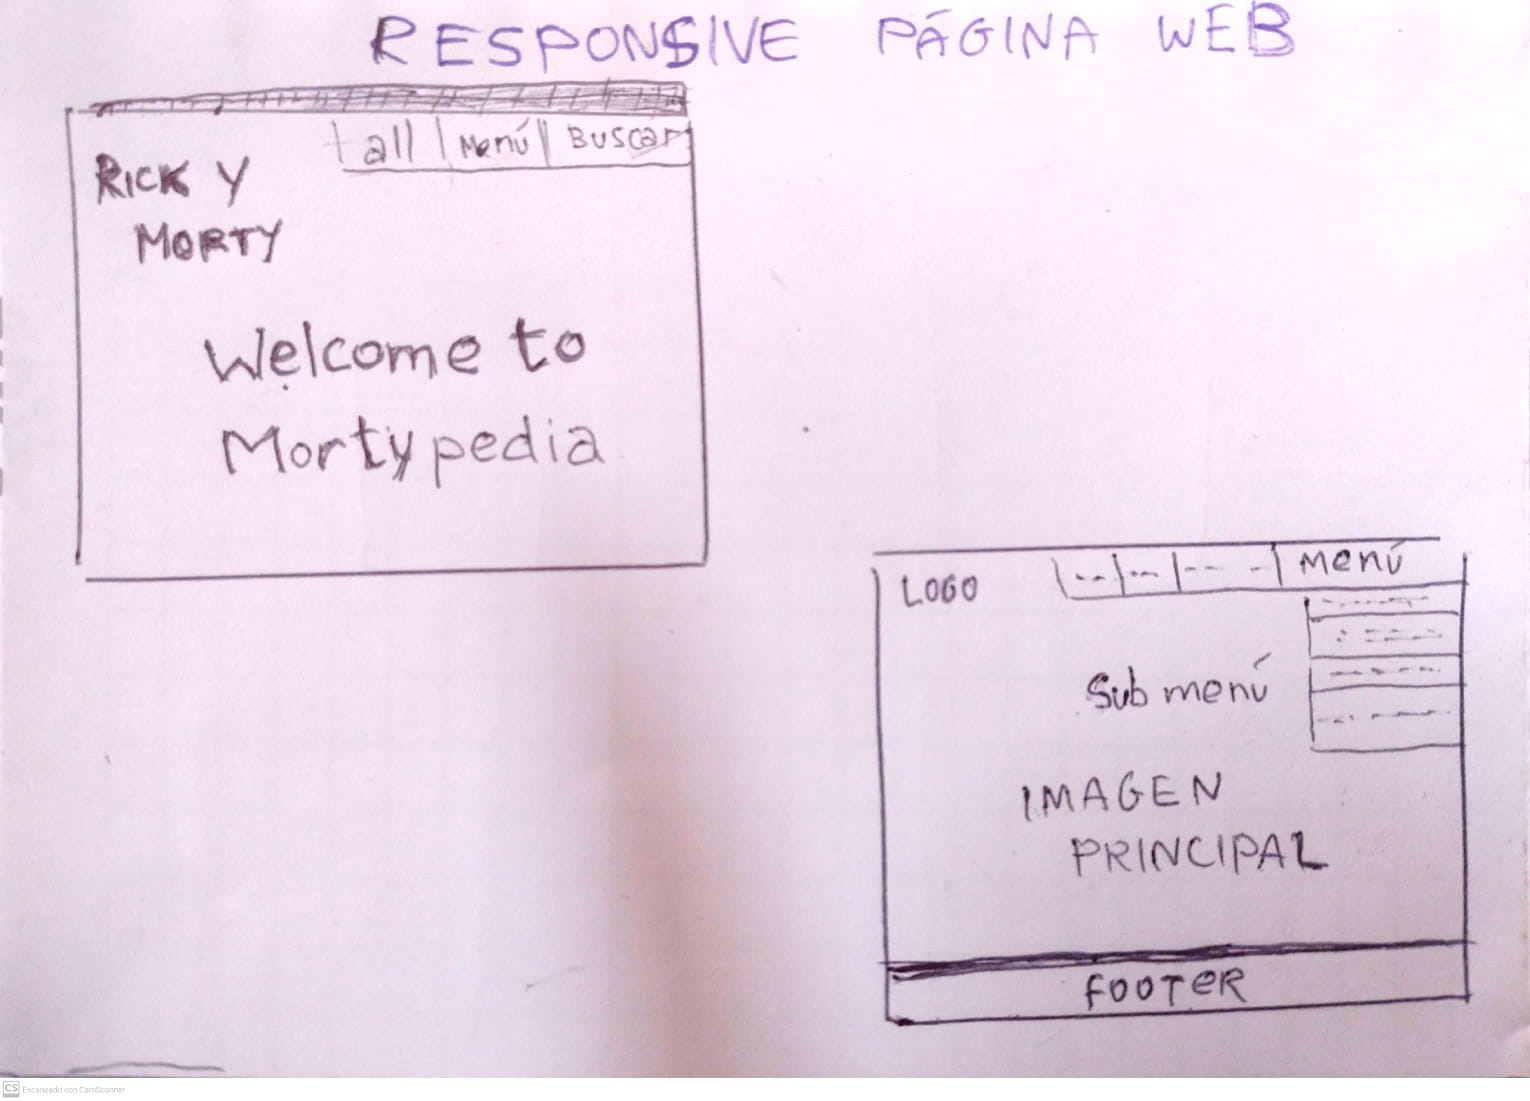 RESPONSIVE PÁGINA WEB
all Menú Buscar
RICK Y
MORTY
Welcome to
Mortypedia
LOGO Menú
Sub menú
IMAGEN
PRINCIPAL
FOOTER
CS Escaneado con CamScanner